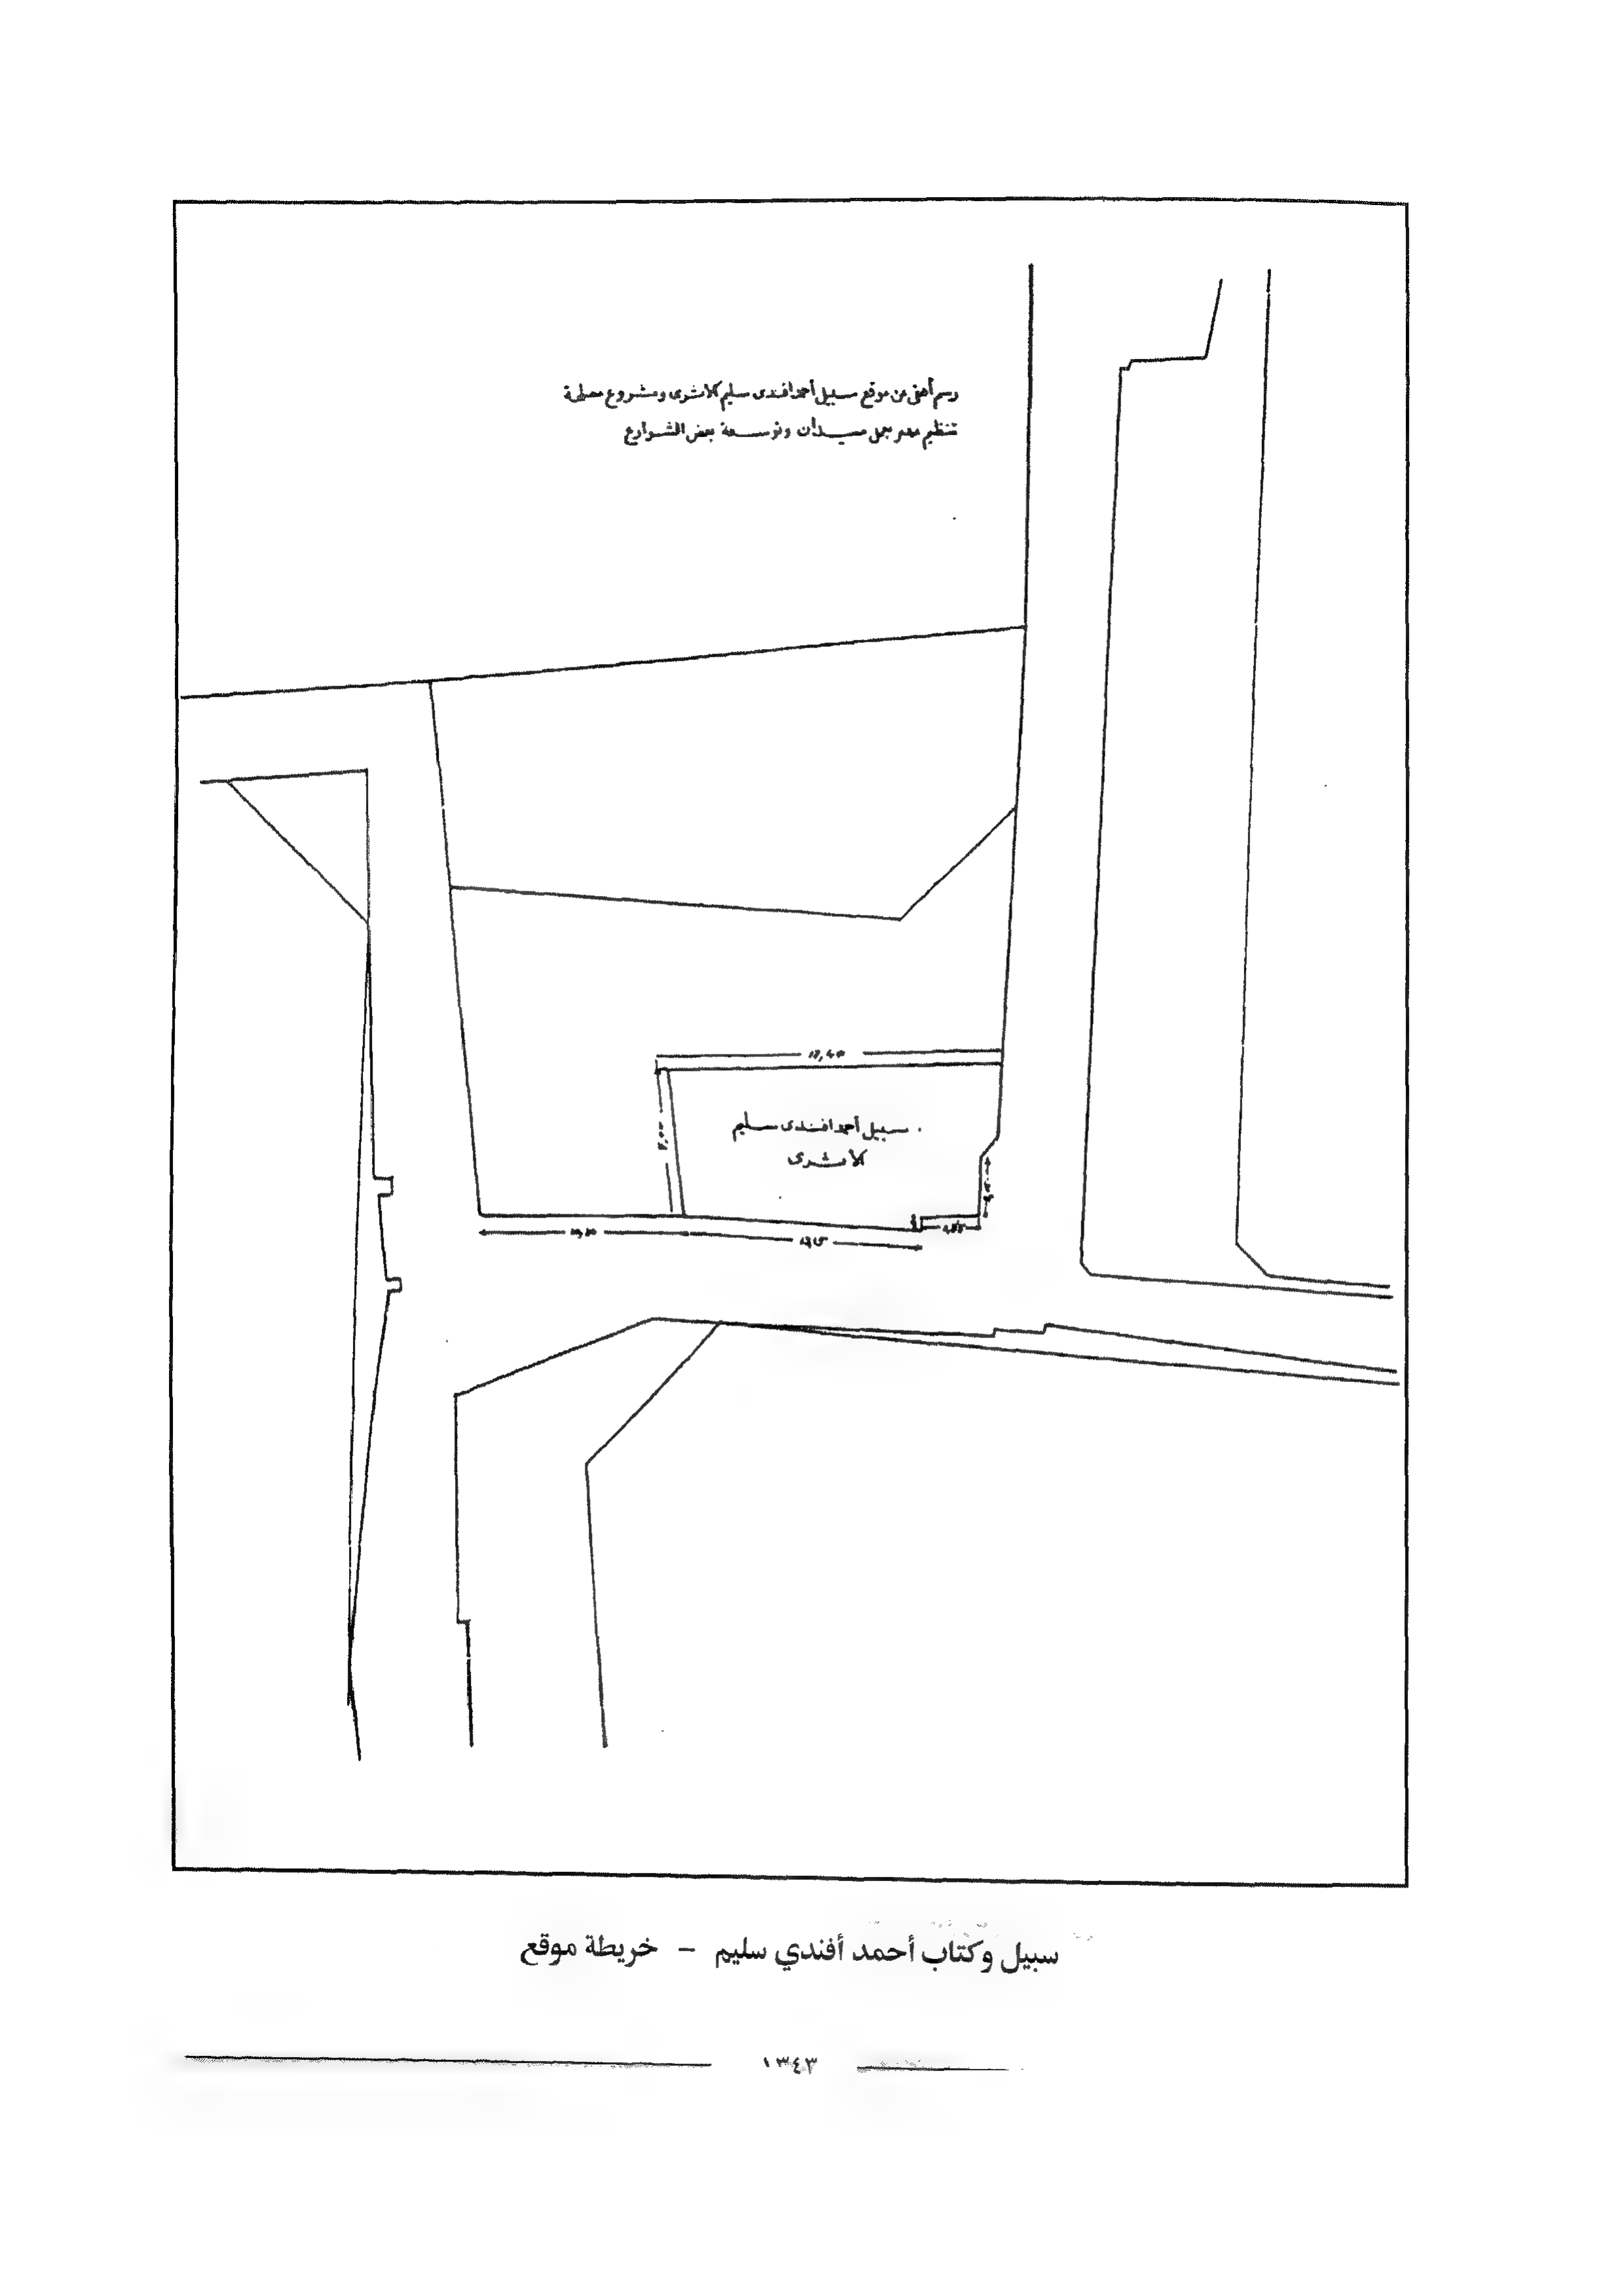 رسم أفقى عن موقع سبيل أحمد افندى سليم الأثرى ومشروع مصلحة
تنظيم مصر بعمل ميدان وتوسعة بعض الشوارع
سبيل أحمد افندى سليم
الأثرى
سبيل وكتاب أحمد أفندي سليم - خريطة موقع
١٣٤٣